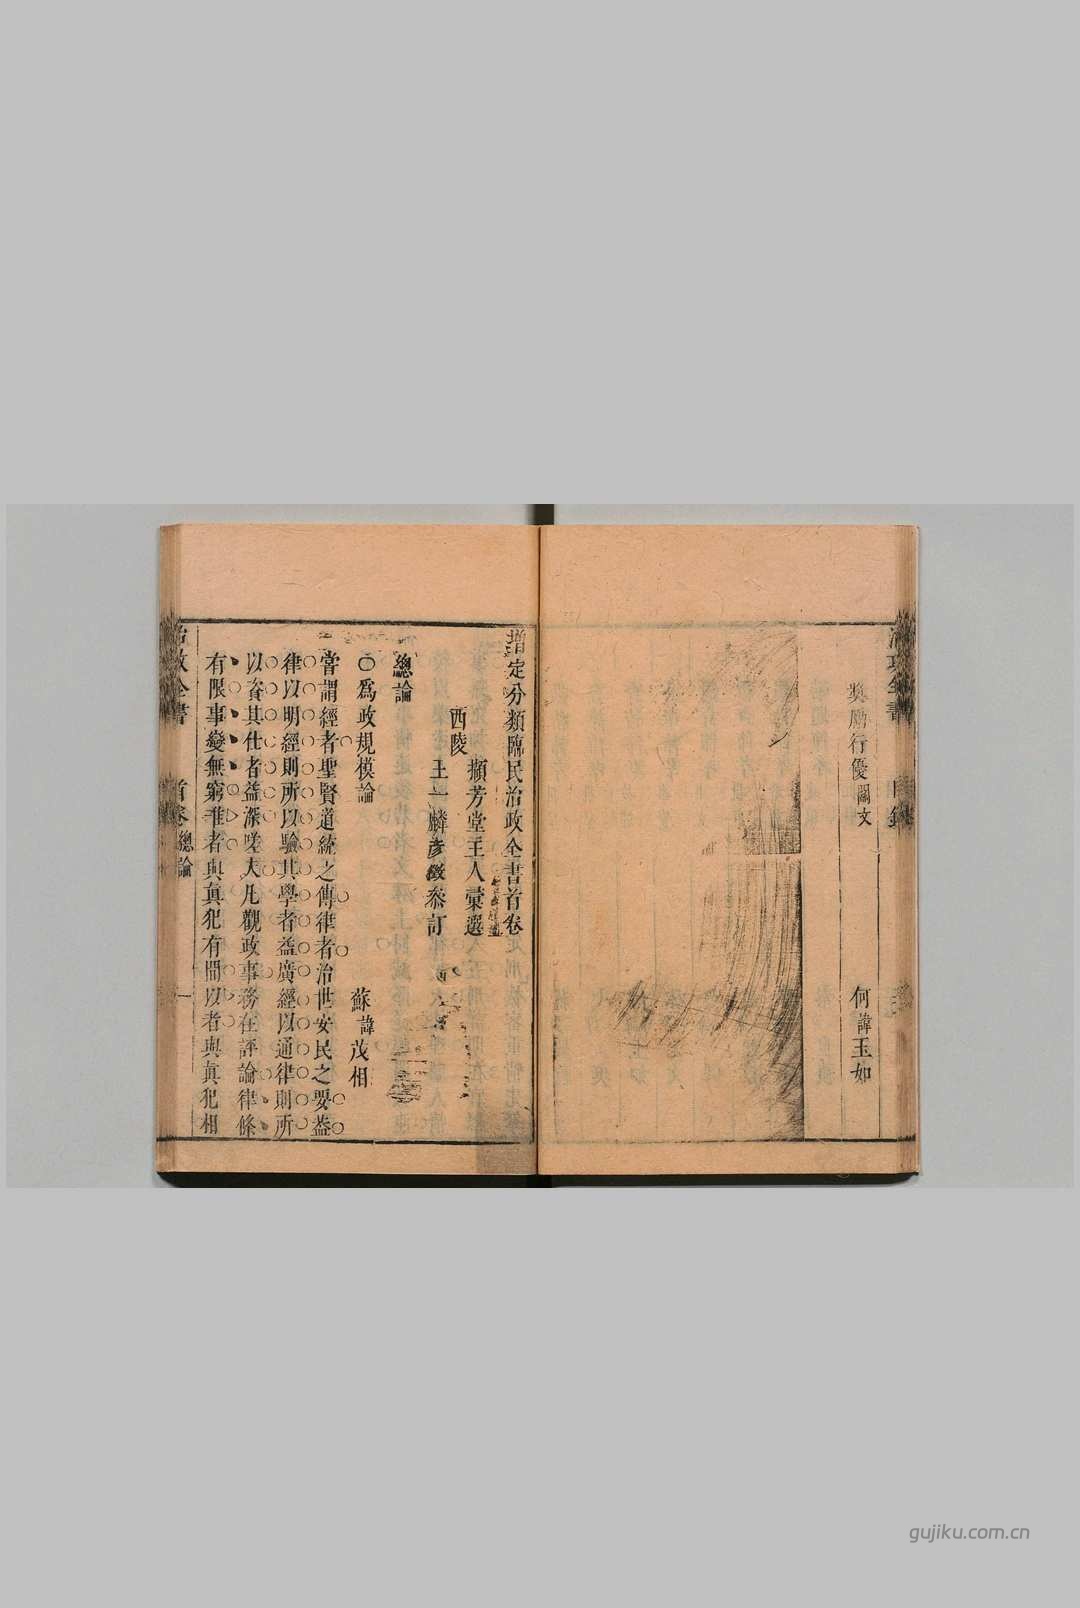 奬勵行優闔文 何諱玉如
治政全書 目錄
增定分類臨民治政全書首卷
西陵
擷芳堂主人彙選
王一麟彦徵叅訂
總論
○爲政規模論 蘇諱茂相
嘗謂經者聖賢道統之傳律者治世安民之要葢
律以明經則所以驗其學者益廣經以通律則所
以資其仕者益深嗟夫凡觀政事務在評論律條
有限事變無窮准者與眞犯有間以者與眞犯相
治政全書 首卷 總論 一
gujiku.com.cn